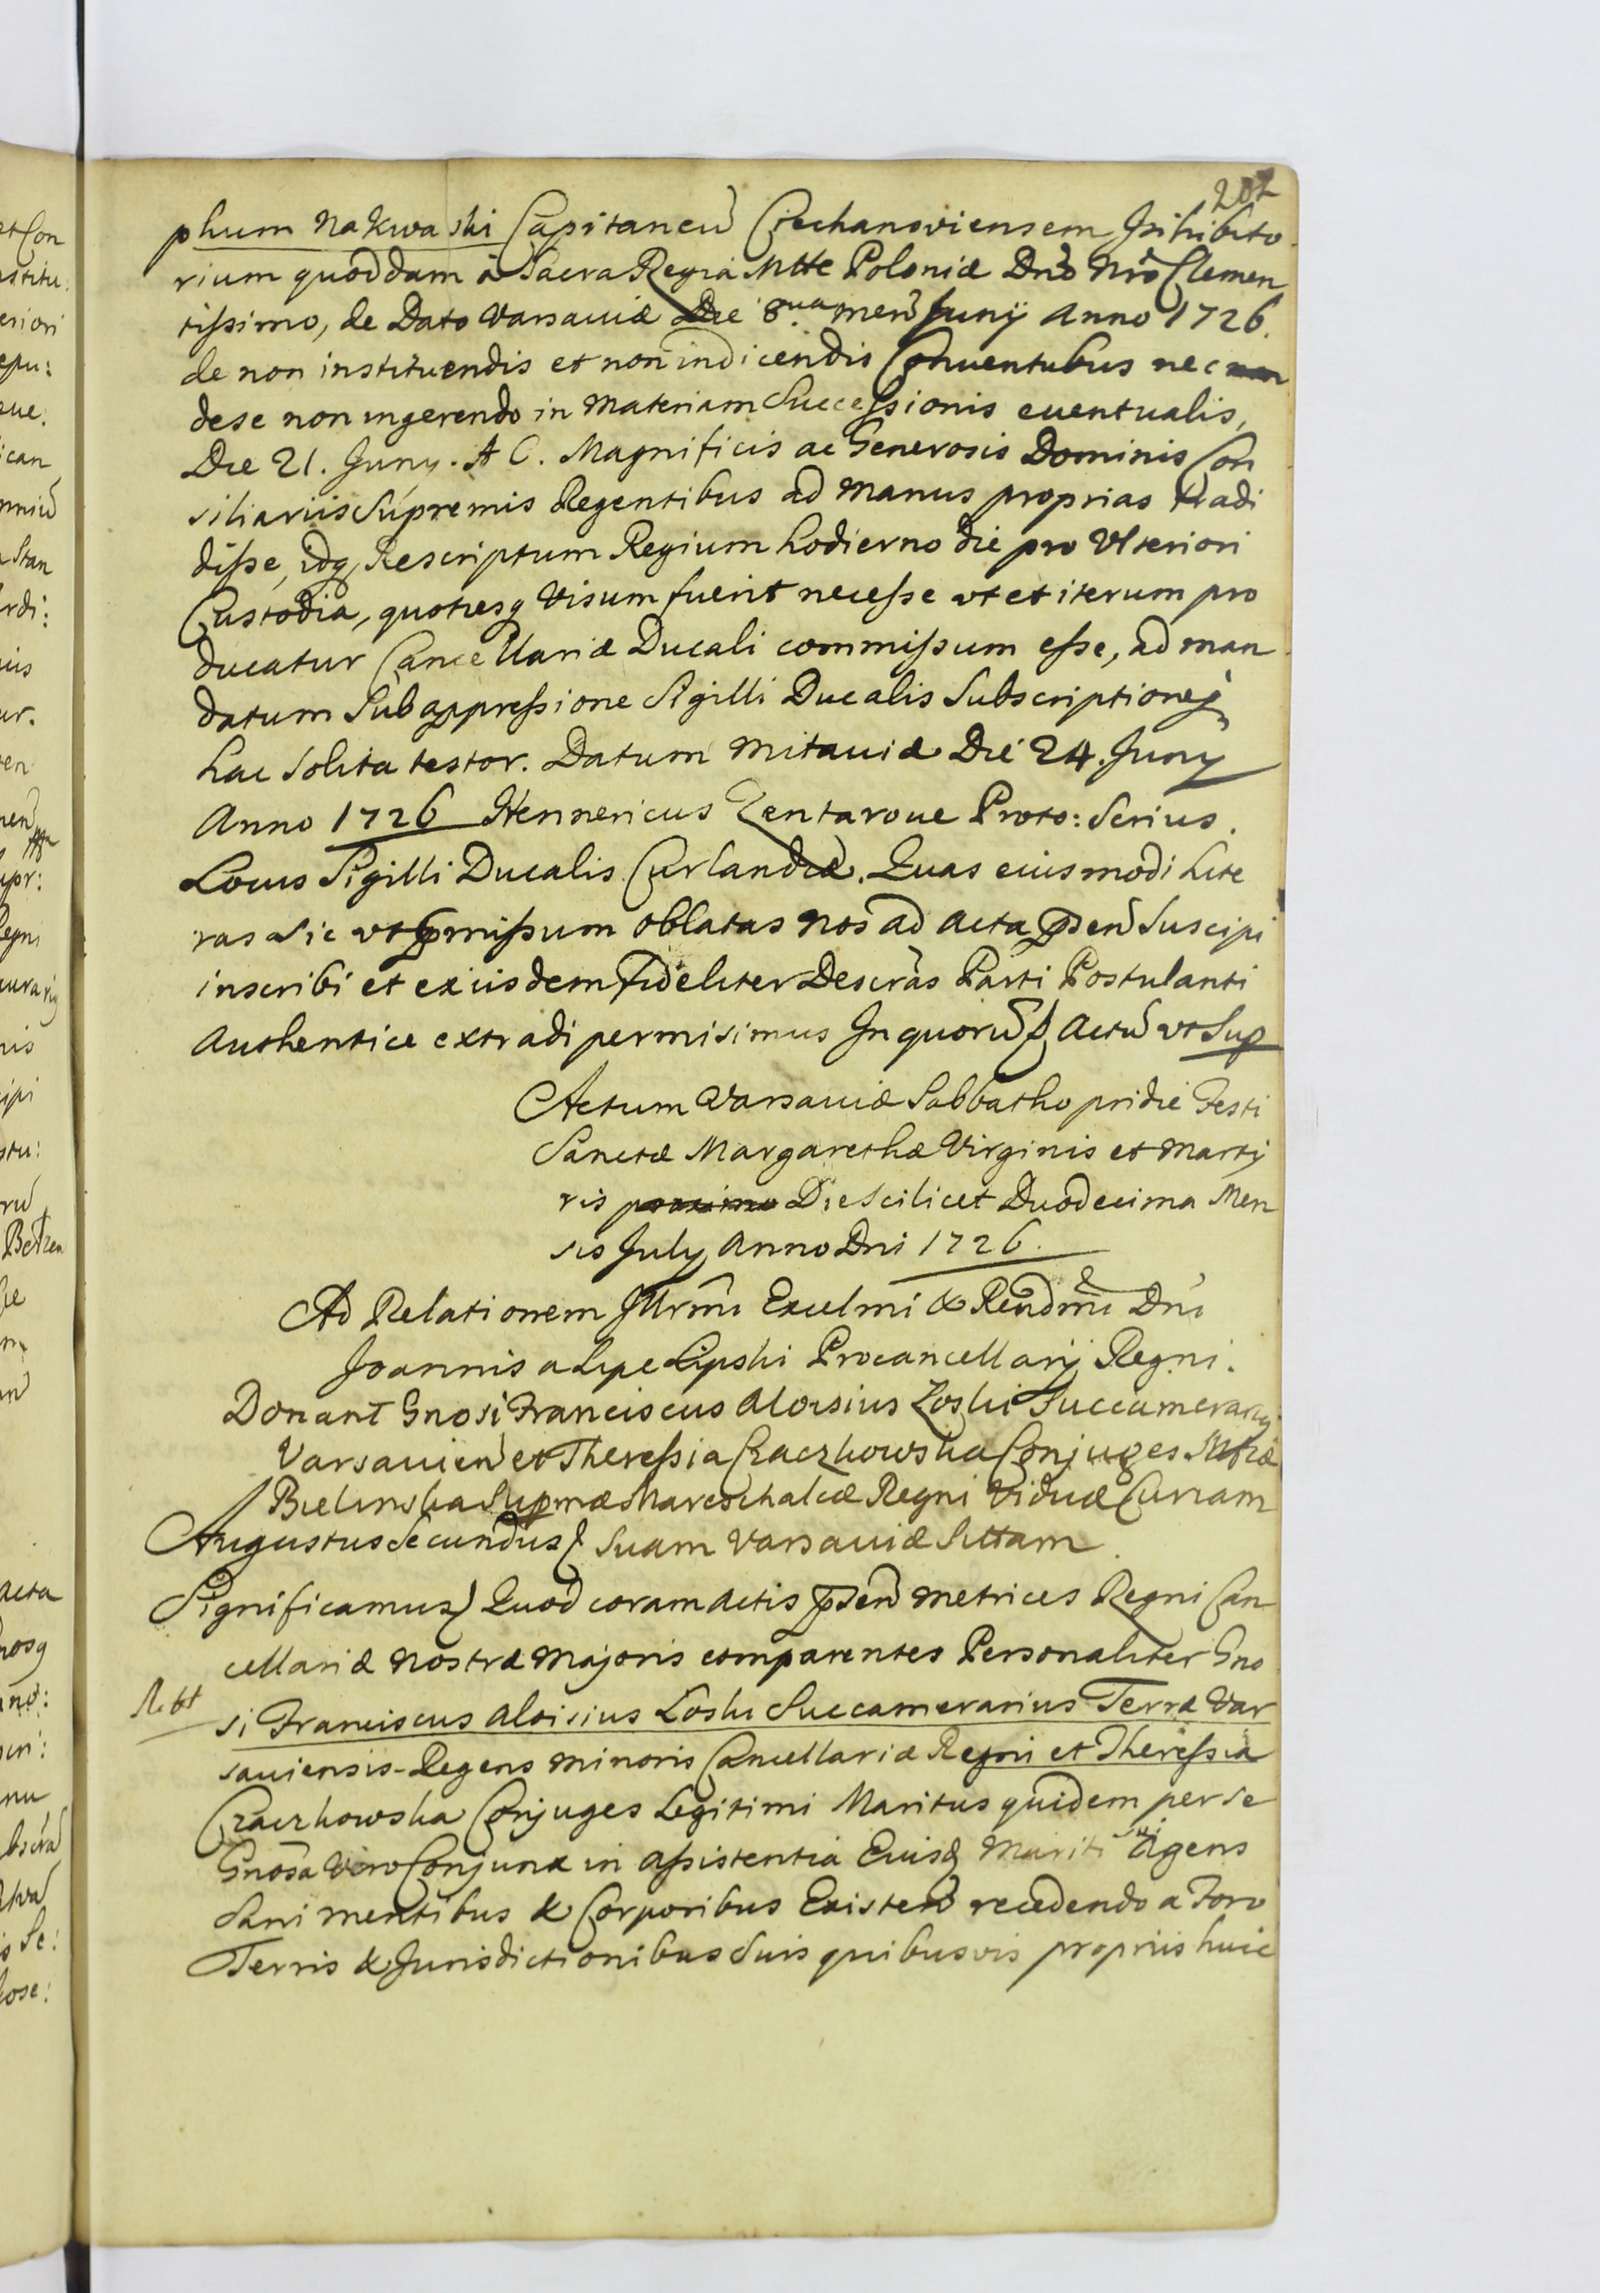 207
phum Nakwaski Capitaneu Ciechanoviensem Inhibito
rium quoddam a Sacra Regia Mtte Poloniæ Dno Nro Clemen
tissimo, de Dato Varsaviæ Die 8va men Junij Anno 1726.
de non instituendis et non indicendis Conventubus nec non
de se non ingerendo in Materiam Successionis eventualis,
Die 21. Juny. A C. Magnificis ac Generosis Dominis Con
siliariis Supremis Regentibus ad manus proprias tradi
disse, idq Rescriptum Regium hodierno die pro Ulteriori
Custodia, quotiesq Visum fuerit necesse vt et iterum pro
ducatur Cancellariæ Ducali commissum esse, ad man
datum Sub appressione Sigilli Ducalis Subscriptioneq
hac Solita testor. Datum Mitaviæ Die 24. Juny
Anno 1726 Hennericus Zentarove Proto: Serius.
Locus Sigilli Ducalis Curlandiæ. Quas eiusmodi Lite
ras sic vt pmissum oblatas nos ad Acta psen Suscipi
inscribi et exiisdem fideliter Descras Parti Postulanti
Authentice extradi permisimus In quoru f Actu vt Sup
Actum Varsaviæ Sabbatho pridie Festi
Sanctæ Margarethæ Virginis et Marty
ris proximo Die Scilicet Duodecima Men
sis July Anno Dni 1726.
Ad Relationem Jllrmi Excelmi & Rendmi Dni
Joannis a Lipe Lipski Procancellarij Regni.
Donant Gnosi Franciscus Aloisius Łoski Succamerarij
Varsavien et Theressia Czaczkowska Conjuges Mfcæ
Bielinska Supmæ Mareschalcæ Regni Viduæ Curiam
Augustus Secundus Suam Varsaviæ Sittam.
Significamus Quod coram Actis psen Metrices Regni Can
cellariæ Nostræ Majoris comparentes Personaliter Gno
si Franciscus Aloisius Łoski Succamerarius Terræ Var
saviensis Regens Minoris Cancellariæ Regni et Theressia
Czaczkowska Conjuges Legitimi Maritus quidem per se
Gnosa Vero Conjunx in Assistentia Eiusd Mariti Sui Agens
Sani mentibus & Corporibus Existen recedendo a Foro
Terris & Jurisdictionibus Suis quibusvis propriis huic